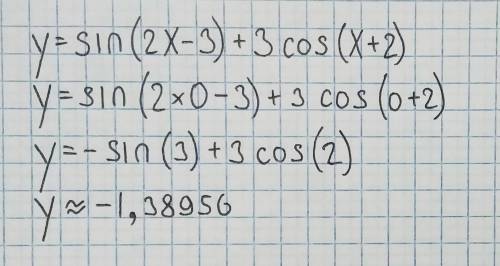 y=sin(2x-3)+3cos(x+2)
y=sin(2×0-3)+3cos(0+2)
y=-sin(3)+3cos(2)
y≈-1,38956